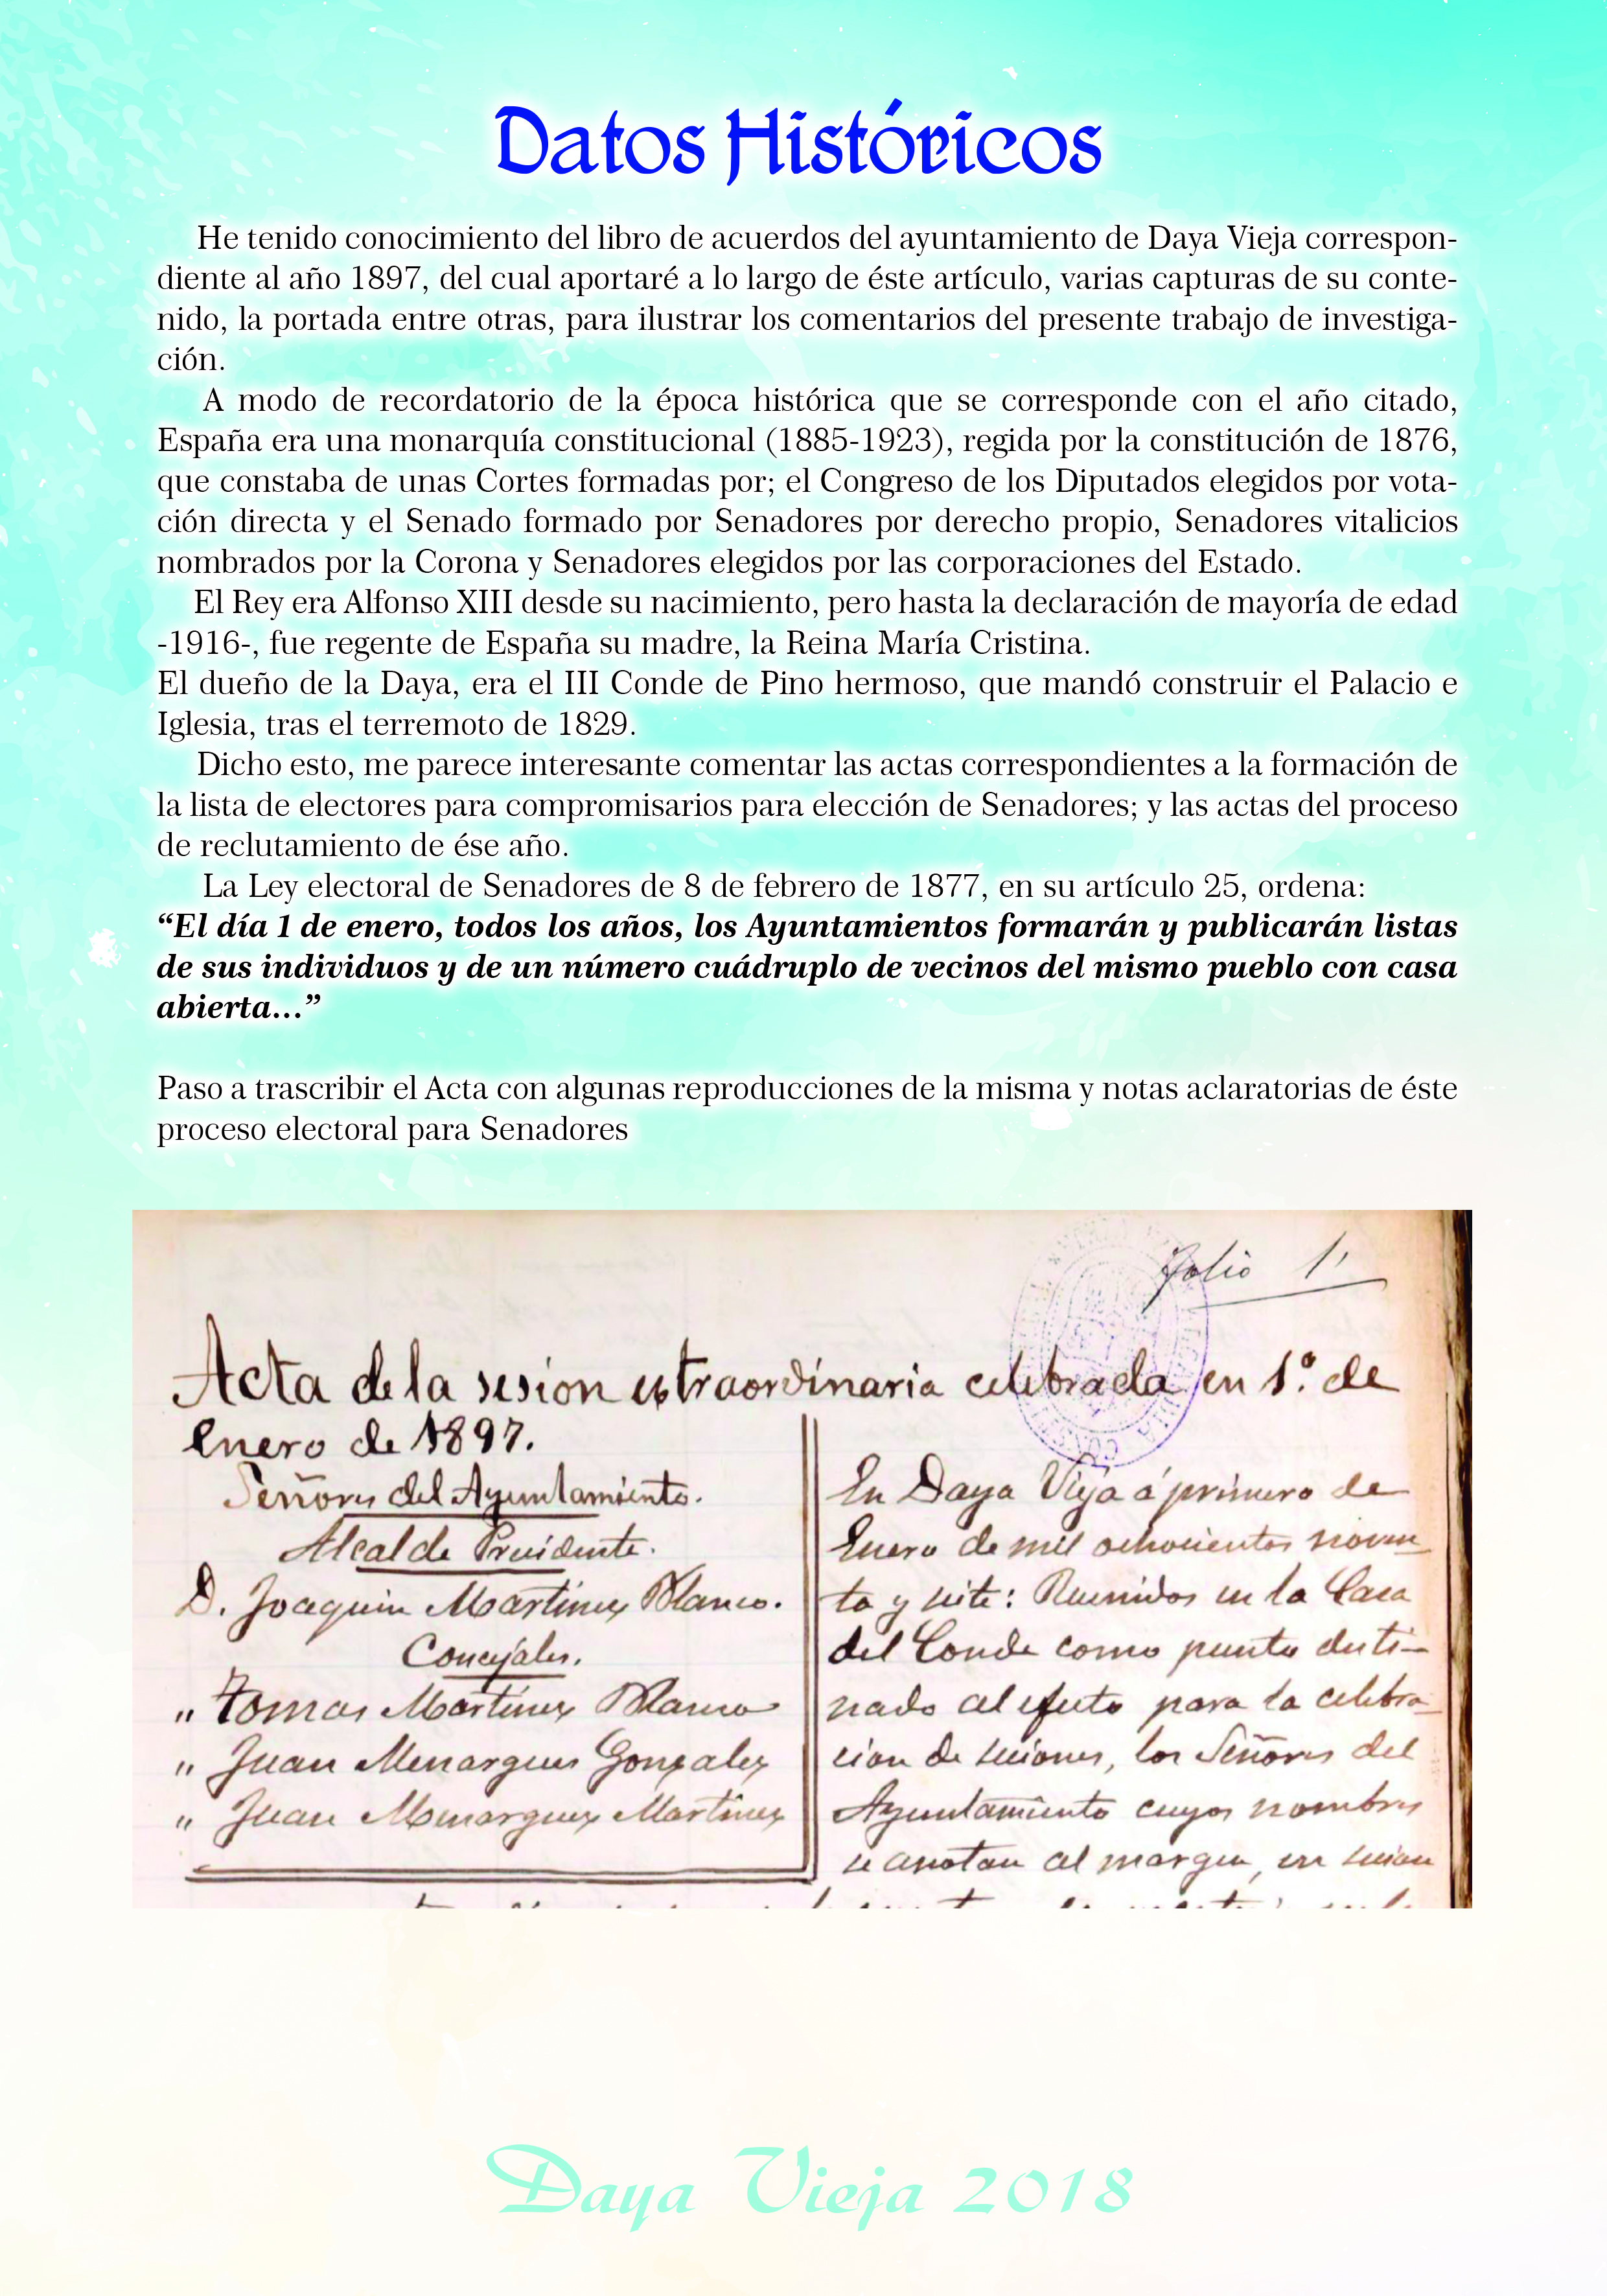 Datos Históricos
He tenido conocimiento del libro de acuerdos del ayuntamiento de Daya Vieja correspon-
diente al año 1897, del cual aportaré a lo largo de éste artículo, varias capturas de su conte-
nido, la portada entre otras, para ilustrar los comentarios del presente trabajo de investiga-
ción.
A modo de recordatorio de la época histórica que se corresponde con el año citado,
España era una monarquía constitucional (1885-1923), regida por la constitución de 1876,
que constaba de unas Cortes formadas por; el Congreso de los Diputados elegidos por vota-
ción directa y el Senado formado por Senadores por derecho propio, Senadores vitalicios
nombrados por la Corona y Senadores elegidos por las corporaciones del Estado.
El Rey era Alfonso XIII desde su nacimiento, pero hasta la declaración de mayoría de edad
-1916-, fue regente de España su madre, la Reina María Cristina.
El dueño de la Daya, era el III Conde de Pino hermoso, que mandó construir el Palacio e
Iglesia, tras el terremoto de 1829.
Dicho esto, me parece interesante comentar las actas correspondientes a la formación de
la lista de electores para compromisarios para elección de Senadores; y las actas del proceso
de reclutamiento de ése año.
La Ley electoral de Senadores de 8 de febrero de 1877, en su artículo 25, ordena:
“El día 1 de enero, todos los años, los Ayuntamientos formarán y publicarán listas
de sus individuos y de un número cuádruplo de vecinos del mismo pueblo con casa
abierta...”
Paso a trascribir el Acta con algunas reproducciones de la misma y notas aclaratorias de éste
proceso electoral para Senadores
folio 1'
Acta de la sesion extraordinaria celebrada en 1.º de
Enero de 1897.
Señores del Ayuntamiento.
Alcalde Presidente.
D. Joaquin Martinez Blanco.
Concejales.
" Tomas Martinez Blanco
" Juan Menargues Gonzalez
" Juan Menarguez Martinez
En Daya Vieja á primero de
Enero de mil ochocientos noven-
ta y siete: Reunidos en la Casa
del Conde como punto desti-
nado al efecto para la celebra-
cion de sesiones, los Señores del
Ayuntamiento cuyos nombres
se anotan al margen, en sesion
Daya Vieja 2018